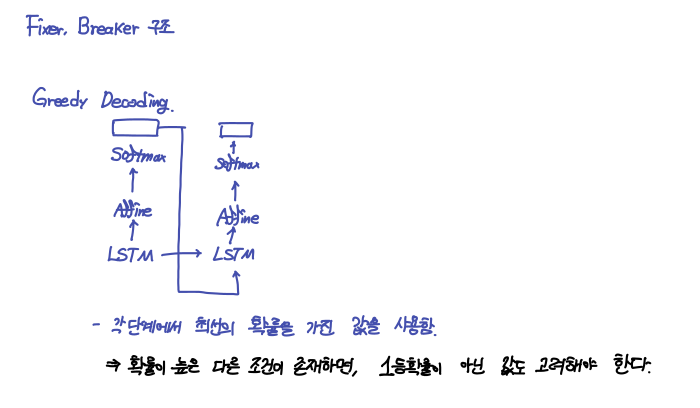 Fixer, Breaker 구조
Greedy Decoding.
Softmax
Softmax
Affine
Affine
LSTM
LSTM
- 각 단계에서 최선의 확률을 가진 값을 사용함.
⇒ 확률이 높은 다른 조건이 존재하면, 1등확률이 아닌 값도 고려해야 한다.